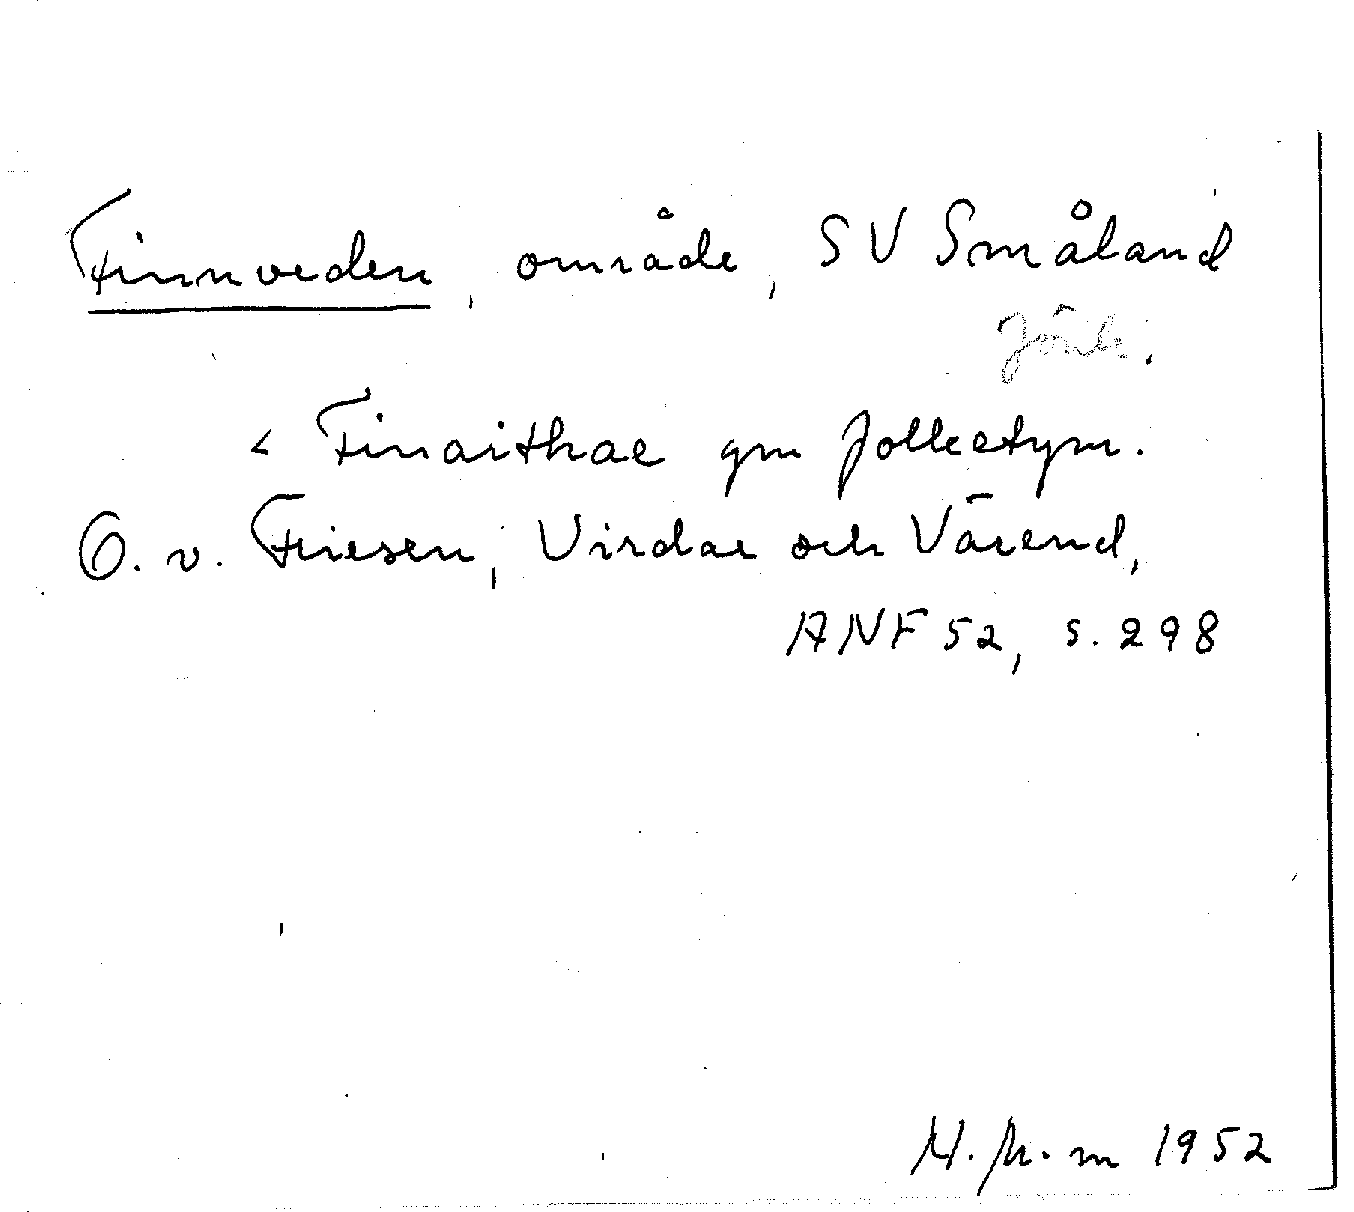 Finnveden, område, SV Småland
Jönk.
< Finaithae gm folketym.
O. v. Friesen, Virdar och Värend,
ANF 52, s. 298
1952